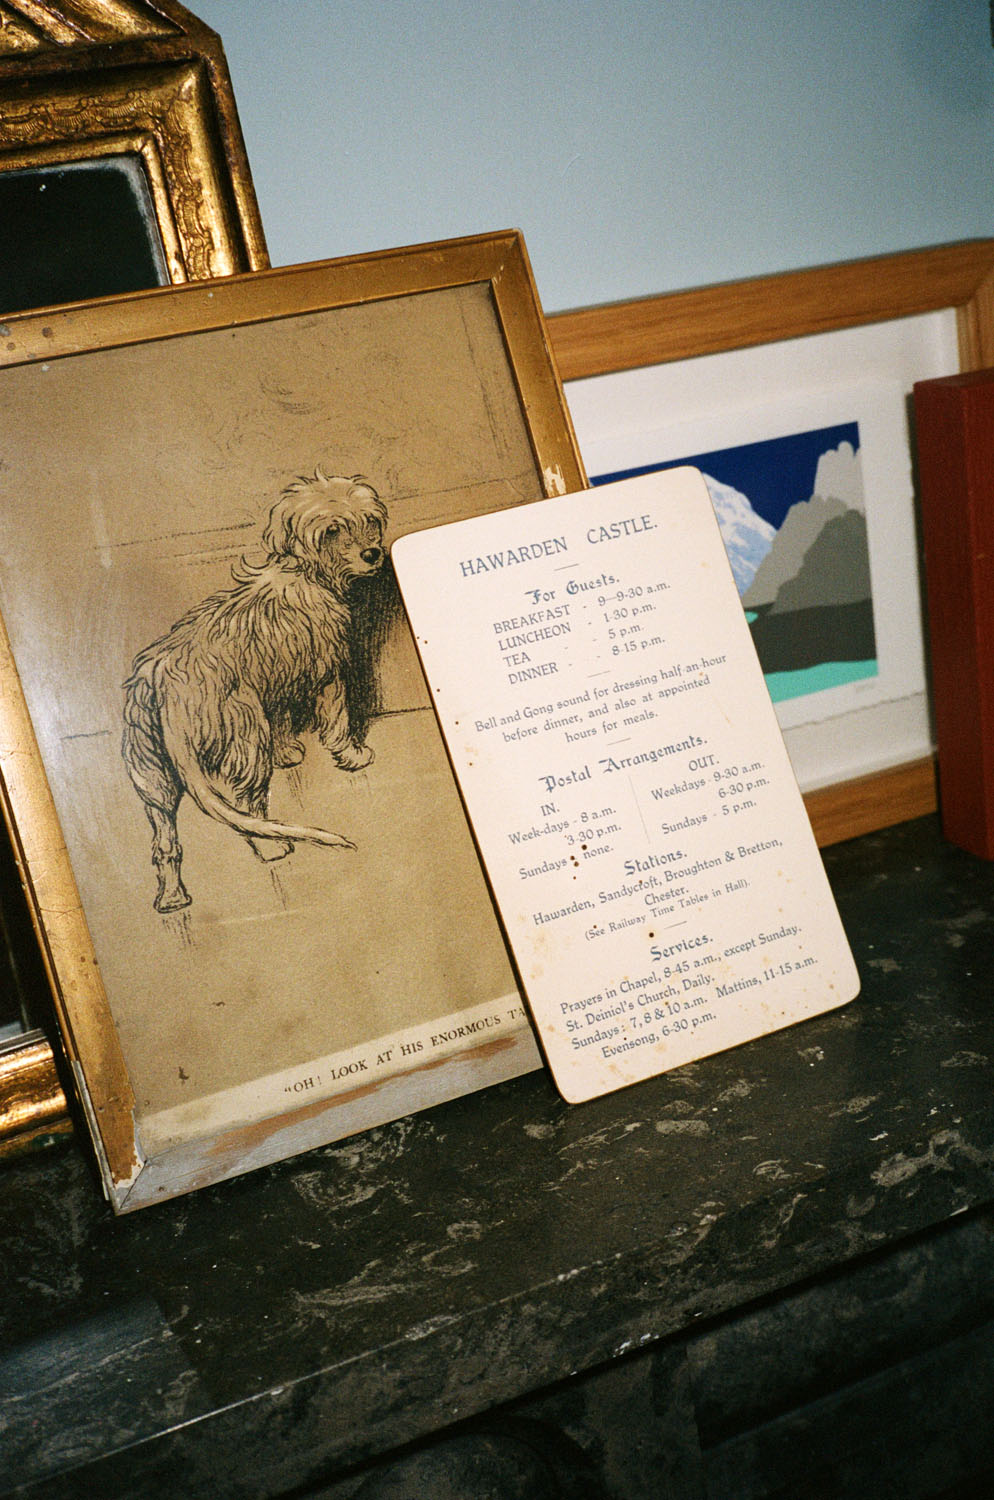 "OH! LOOK AT HIS ENORMOUS
HAWARDEN CASTLE.
For Guests.
BREAKFAST - 9—9-30 a.m.
LUNCHEON - 1-30 p.m.
TEA - - 5 p.m.
DINNER - - 8-15 p.m.
Bell and Gong sound for dressing half-an-hour
before dinner, and also at appointed
hours for meals.
Postal Arrangements.
IN.
Week-days - 8 a.m.
3.30 p.m.
Sundays - none.
OUT.
Weekdays - 9-30 a.m.
6-30 p.m.
Sundays - 5 p.m.
Stations.
Hawarden, Sandycroft, Broughton & Bretton,
Chester.
(See Railway Time Tables in Hall).
Services.
Prayers in Chapel, 8-45 a.m., except Sunday.
St. Deiniol's Church, Daily.
Sundays: 7, 8 & 10 a.m. Mattins, 11-15 a.m.
Evensong, 6-30 p.m.